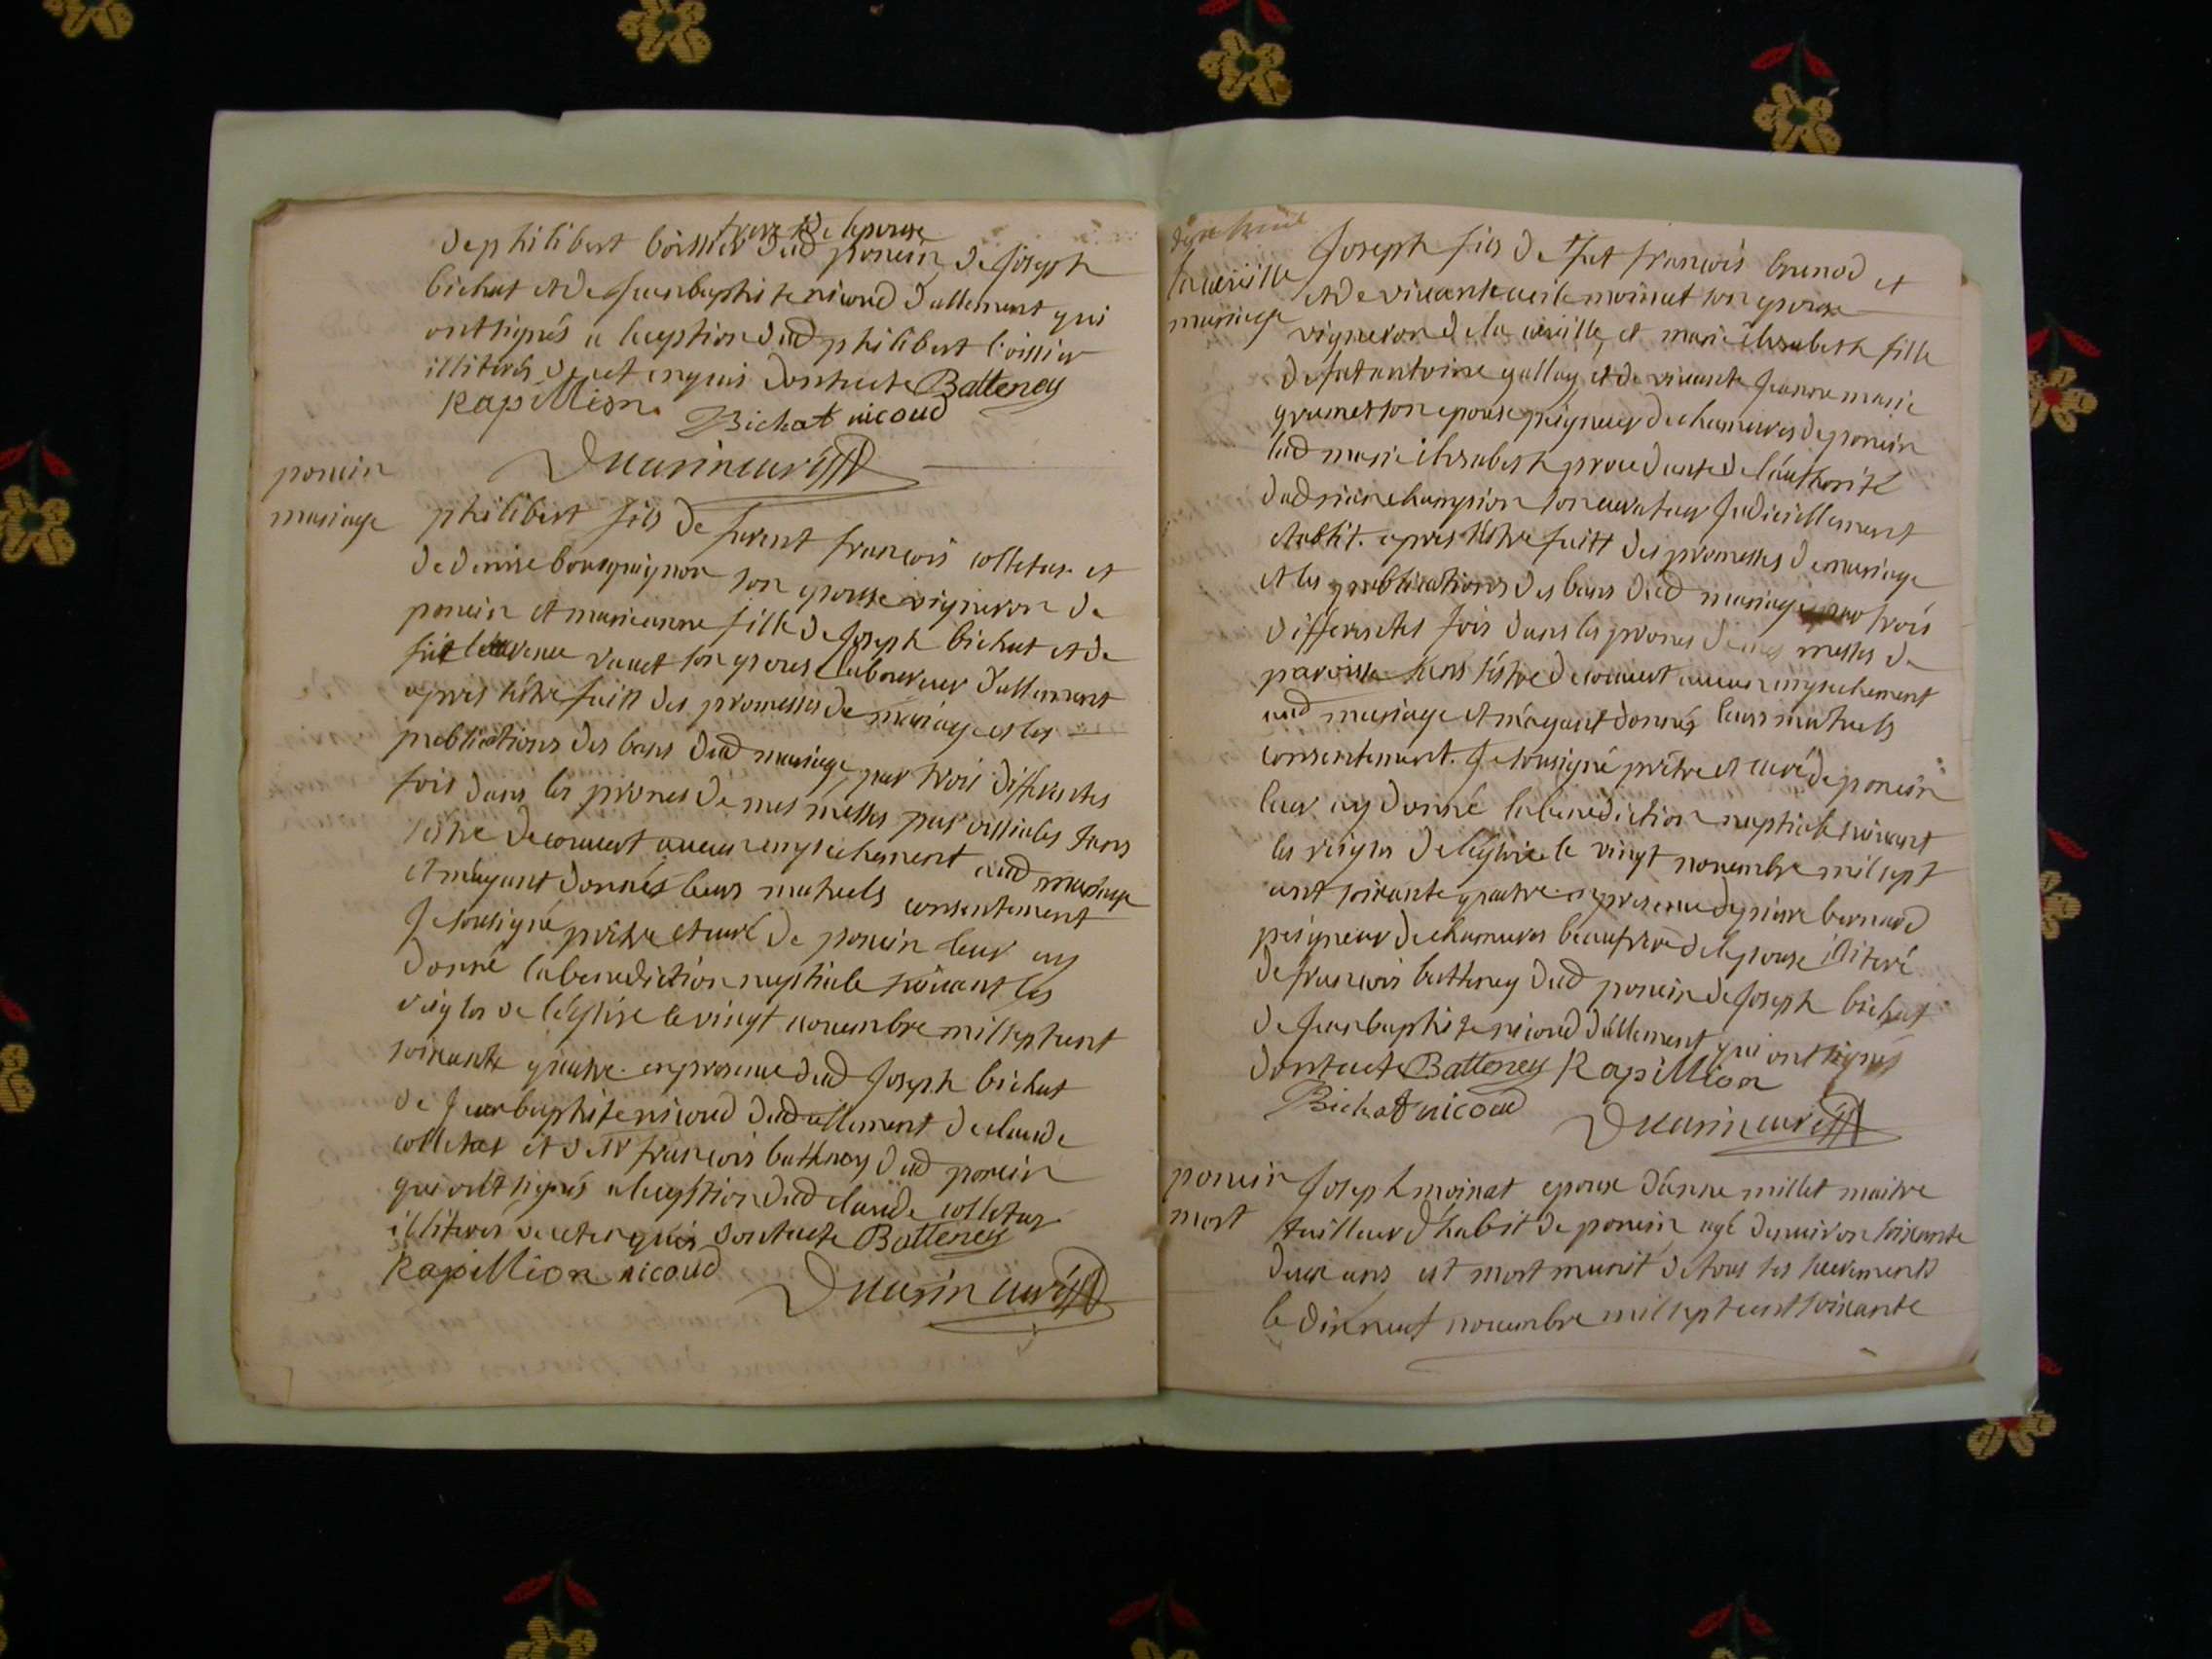 frere de lepouse
de philibert boissier dud poncin, de Joseph
bichat et de Jeanbaptiste nicoud dallement qui
ont signés a leception dud philibert boissier
illiterés de cet enquis dont acte Batteney
Rapillion. Bichat nicoud
poncin
mariage
philibert fils de furent francois colletas et
de denise bourguignon son epouse vigneron de
poncin et marieanne fille de Joseph bichat et de
fut vauet son epouse laboureur dallement
apres lêtre faitt des promesses de mariage et les
publications des bans dud mariage, par trois differentes
fois dans les prones de mes messes parroissiales sans
sêtre decouvert aucun empechement aud mariage
et mayant donnés leurs mutuels consentement
Je sousigné prêtre et curé de poncin leur ay
donné la benediction nuptiale suivant les
reigles de léglise le vingt novembre mil sept cent
soixante quatre. en presence dud Joseph bichat
de Jeanbaptiste nicoud dud allement de claude
colletas et de Mr francois battney dud poncin
qui ont signés a leception dud claude colletas
illiterés de cet enquis dont acte Batteney
Rapillion nicoud
la cueille
mariage
Joseph fils de fut francois brunod et
et de vivante moinat son epouse
vigneron de la cueille, et marie elisabeth fille
de fut antoine gallay et de vivante Jeanne marie
grumet son epouse peigneur de chanvres de poncin
lad marie elisabeth procedante de lauthorité
dadrian champion son curateur Judiciellement
etablit. apres sêtre faitt des promesses de mariage
et les publications des bans dud mariage par trois
differentes fois dans les prones de mes messes de
paroisse sans sêtre decouvert aucun empechement
aud mariage et mayant donnés leurs mutuels
consentement. Je sousigné prêtre et curé de poncin
leur ay donné la benediction nuptiale suivant
les reigles de leglise le vingt novembre mil sept
cent soixante quatre. en presence de pierre bernard
peigneur de chanvres beaufrere de lepouse illiteré
de francois battney dud poncin de Joseph bichat
de Jeanbaptiste nicoud dallement qui ont signés
dont acte Batteney Rapillion
Bichat nicoud
poncin
mort
Joseph moinat epoux danne millet maitre
tailleur dhabit de poncin agé denviron soixante
deux ans est mort munit de tous les sacrements
le dixneuf novembre mil sept cent soixante